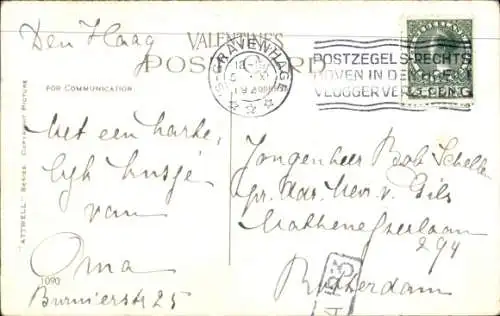 Den Haag
VALENTINE'S
POSTCARD
'S-GRAVENHAGE
POSTZEGELS RECHTS
BOVEN IN DEN HOEK
VLUGGER VER
5 CENT
FOR COMMUNICATION
"ATTWELL" SERIES. COPYRIGHT PICTURE
Met een harte,
lijk kusje
van
Oma
Burnierstr 25
1090
Jongenheer Bob
pr. adr. Mevr. v. Gils
Mathenesserlaan
294
Rotterdam